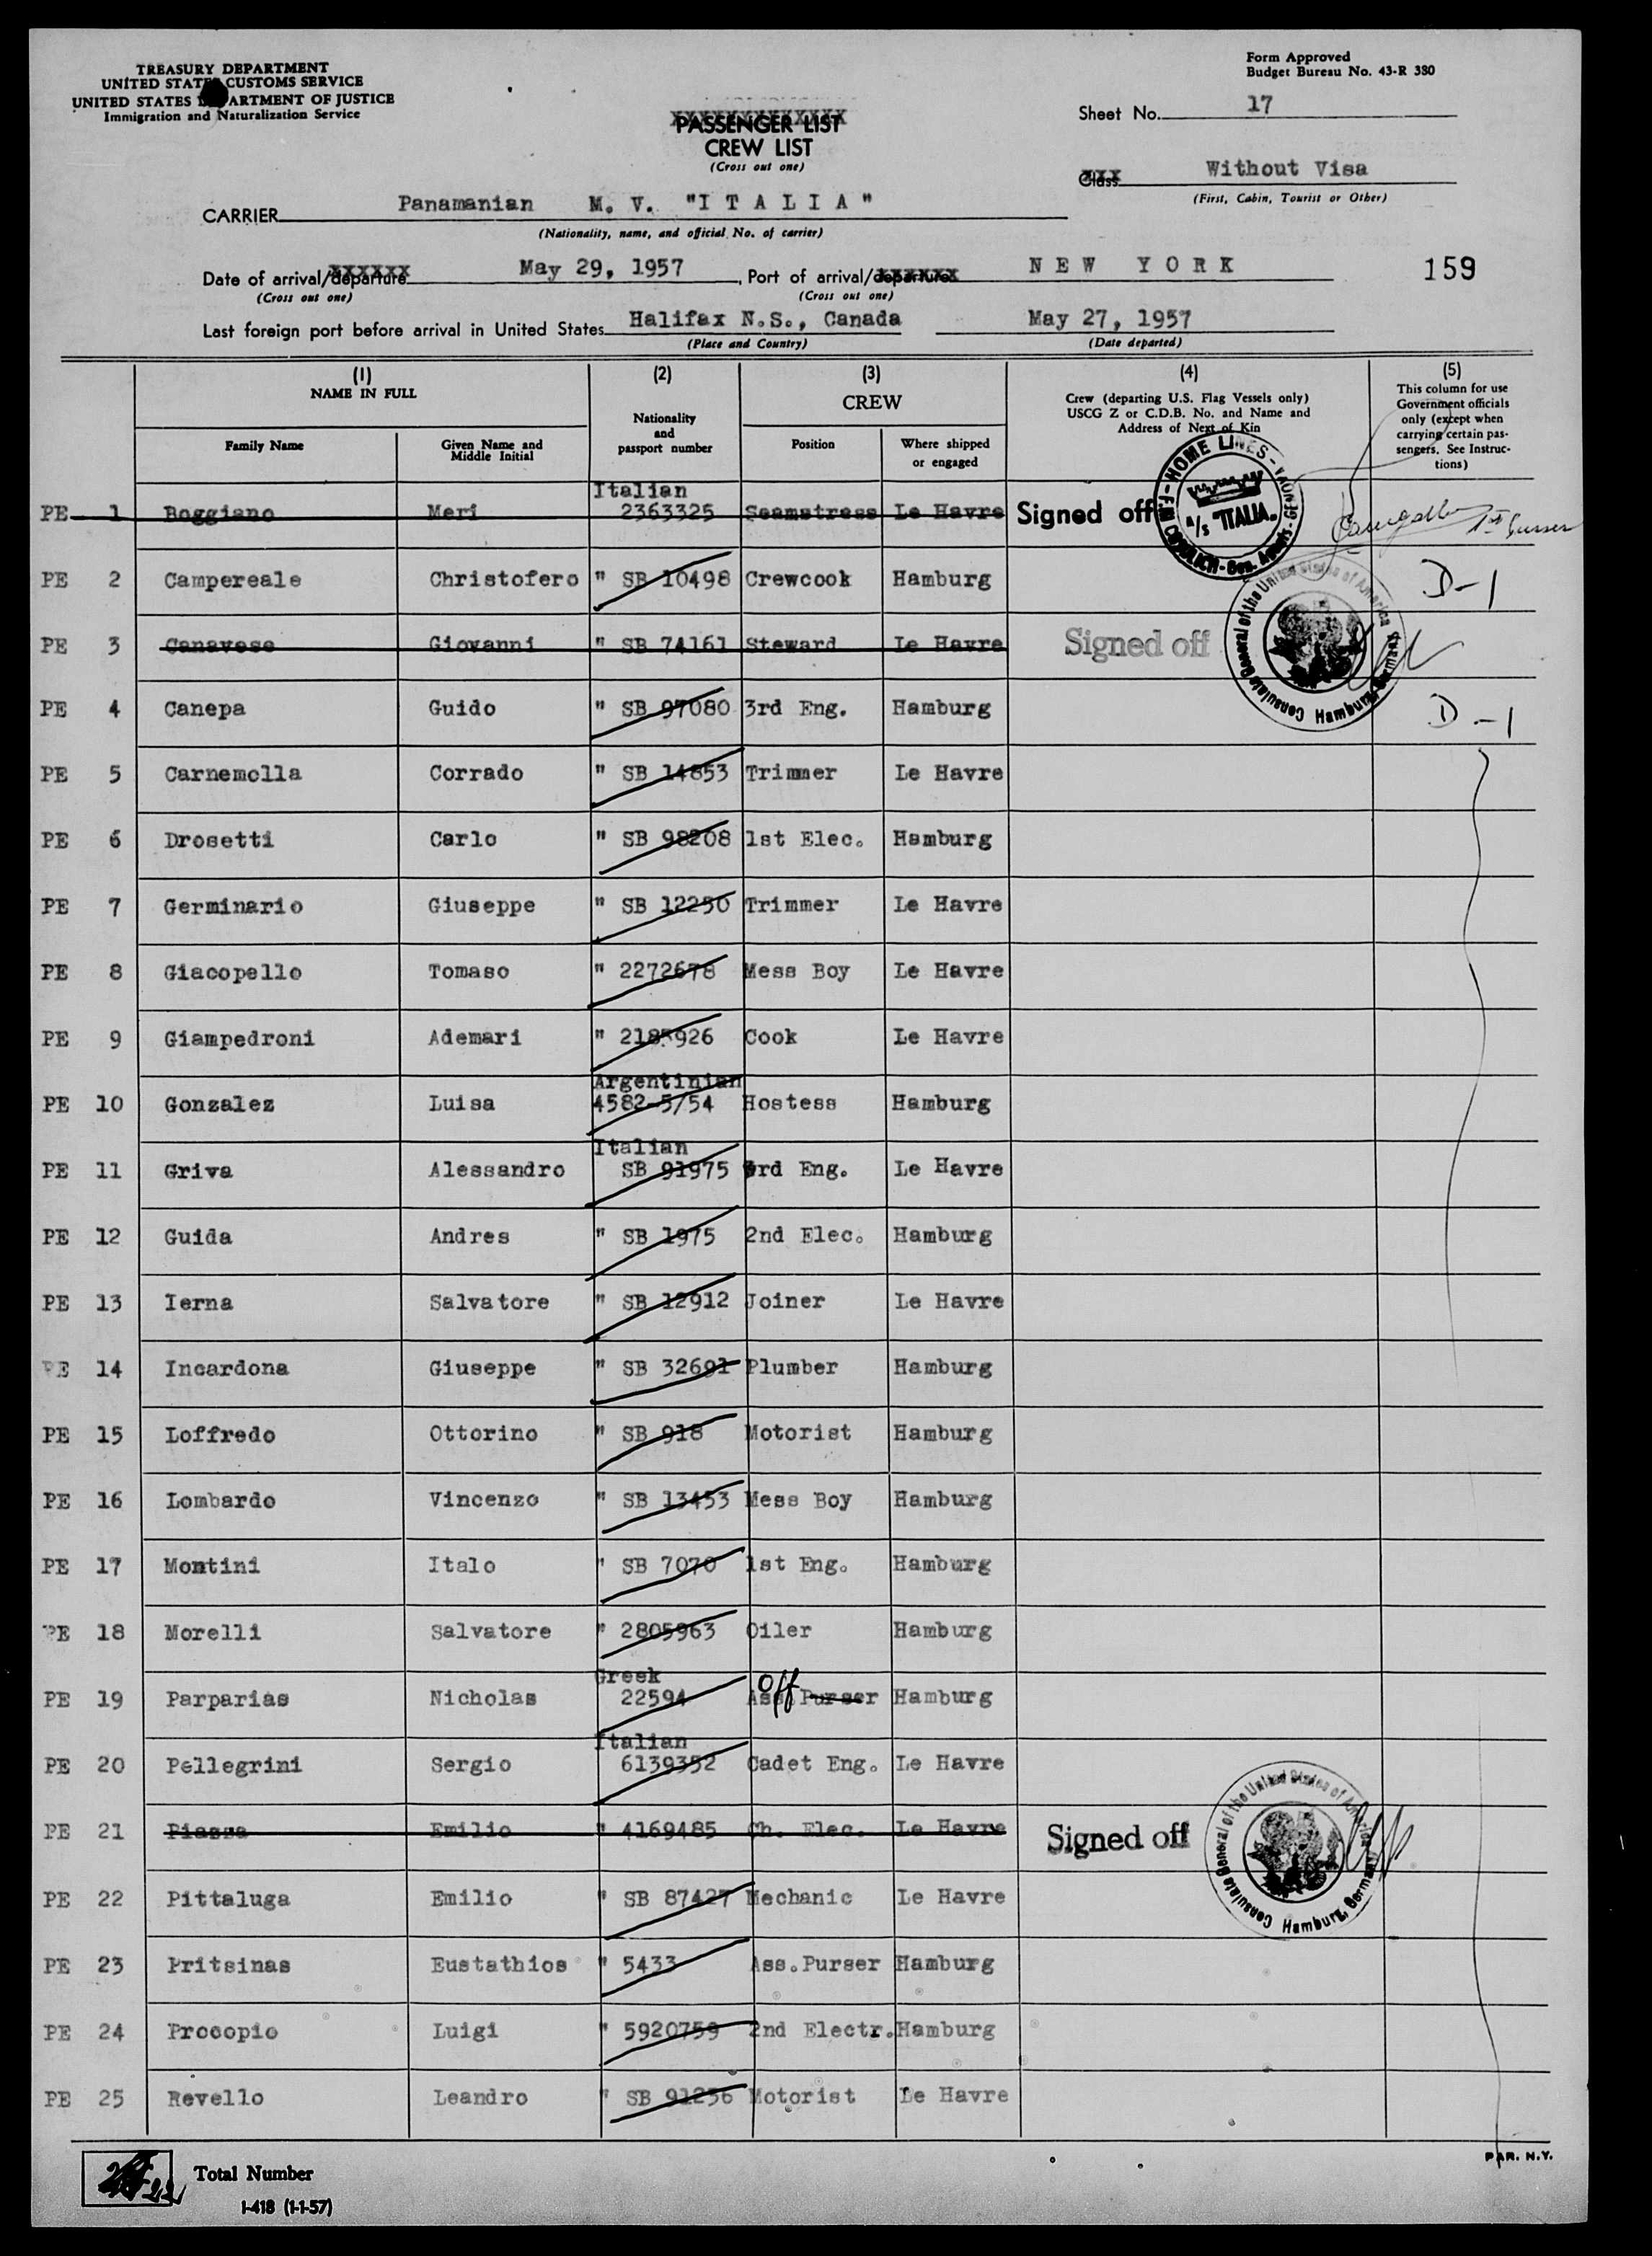 TREASURY DEPARTMENT
UNITED STATES CUSTOMS SERVICE
UNITED STATES DEPARTMENT OF JUSTICE
Immigration and Naturalization Service
Form Approved
Budget Bureau No. 43-R 380
Sheet No. 17
PASSENGER LIST
CREW LIST
(Cross out one)
Class Without Visa
(First, Cabin, Tourist or Other)
CARRIER Panamanian M. V. "I T A L I A"
(Nationality, name, and official No. of carrier)
Date of arrival/departure May 29, 1957, Port of arrival/departure N E W Y O R K 159
(Cross out one) (Cross out one)
Last foreign port before arrival in United States Halifax N.S., Canada May 27, 1957
(Place and Country) (Date departed)
(1) (2) (3) (4) (5)
NAME IN FULL
Family Name
Given Name and
Middle Initial
Nationality
and
passport number
CREW
Position
Where shipped
or engaged
Crew (departing U.S. Flag Vessels only)
USCG Z or C.D.B. No. and Name and
Address of Next of Kin
This column for use
Government officials
only (except when
carrying certain pas-
sengers. See Instruc-
tions)
Italian
PE 1 Boggiano Meri 2363325 Seamstress Le Havre Signed off
HOME LINES
"ITALIA"
PE 2 Campereale Christofero " SB 10498 Crewcook Hamburg D-1
PE 3 Canavese Giovanni " SB 74161 Steward Le Havre Signed off
Consulate General of the United States of America Hamburg, Germany
PE 4 Canepa Guido " SB 97080 3rd Eng. Hamburg D-1
PE 5 Carnemolla Corrado " SB 14853 Trimmer Le Havre
PE 6 Drosetti Carlo " SB 98208 1st Elec. Hamburg
PE 7 Germinario Giuseppe " SB 12250 Trimmer Le Havre
PE 8 Giacopello Tomaso " 2272678 Mess Boy Le Havre
PE 9 Giampedroni Ademari " 2185926 Cook Le Havre
Argentinian
PE 10 Gonzalez Luisa 4582-5/54 Hostess Hamburg
Italian
PE 11 Griva Alessandro SB 91975 3rd Eng. Le Havre
PE 12 Guida Andres " SB 1975 2nd Elec. Hamburg
PE 13 Ierna Salvatore " SB 12912 Joiner Le Havre
PE 14 Incardona Giuseppe " SB 32691 Plumber Hamburg
PE 15 Loffredo Ottorino " SB 918 Motorist Hamburg
PE 16 Lombardo Vincenzo " SB 13453 Mess Boy Hamburg
PE 17 Montini Italo " SB 7070 1st Eng. Hamburg
PE 18 Morelli Salvatore " 2805963 Oiler Hamburg
Greek
PE 19 Parparias Nicholas 22594 Ass. Purser Off Hamburg
Italian
PE 20 Pellegrini Sergio 6139352 Cadet Eng. Le Havre
PE 21 Piazza Emilio " 4169485 Ch. Elec. Le Havre Signed off
Consulate General of the United States of America Hamburg, Germany
PE 22 Pittaluga Emilio " SB 87427 Mechanic Le Havre
PE 23 Pritsinas Eustathios " 5433 Ass.Purser Hamburg
PE 24 Procopio Luigi " 5920759 2nd Electr. Hamburg
PE 25 Revello Leandro " SB 91256 Motorist Le Havre
PAR. N.Y.
22 Total Number
I-418 (1-1-57)